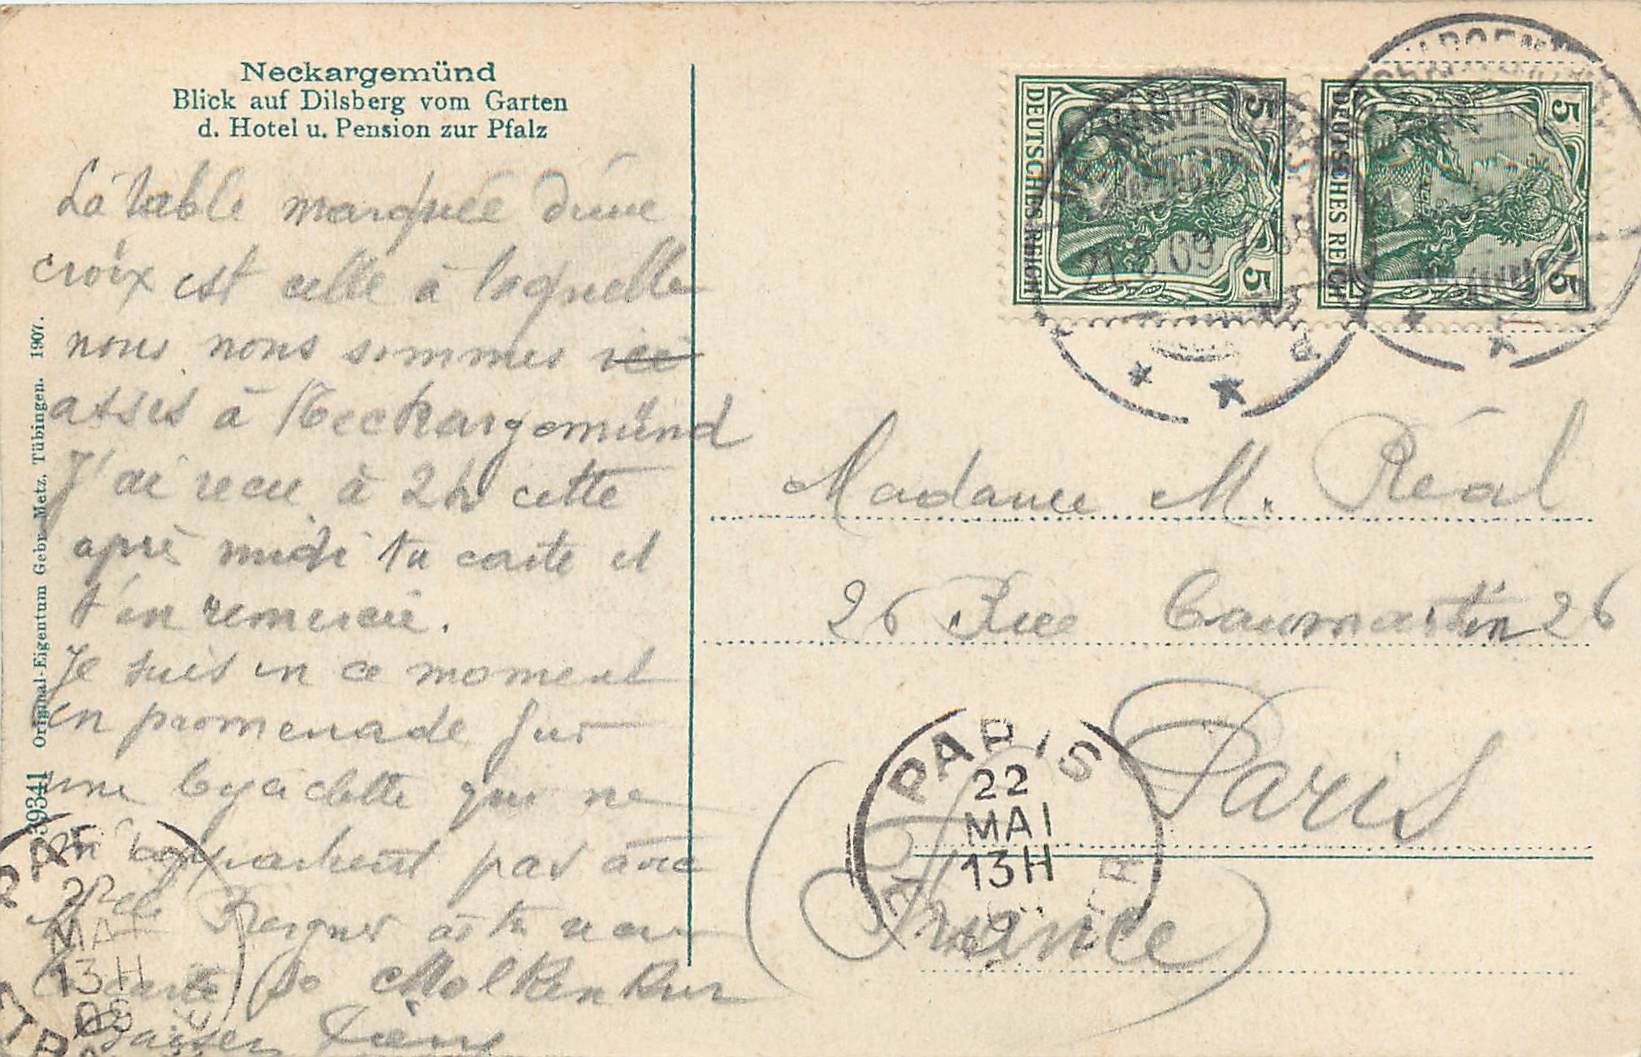 Neckargemünd
Blick auf Dilsberg vom Garten
d. Hotel u. Pension zur Pfalz
La table marquée d'une
croix est celle à laquelle
nous nous sommes ici
assis à Neckargemünd
J'ai recu à 2h cette
aprè midi ta carte et
t'en remercie.
Je suis en ce moment
en promenade sur
une bycidette qui ne
m'appartient pas avec
Melle as tu
carte Molkenkur
Baiser
039341 Original-Eigentum Gebr. Metz, Tübingen. 1907.
5 DEUTSCHES REICH 5
5 DEUTSCHES REICH 5
21.5.09
Madame M. Réal
26 Rue Caumartin 26
Paris
(France)
PARIS
22
MAI
13H
13H